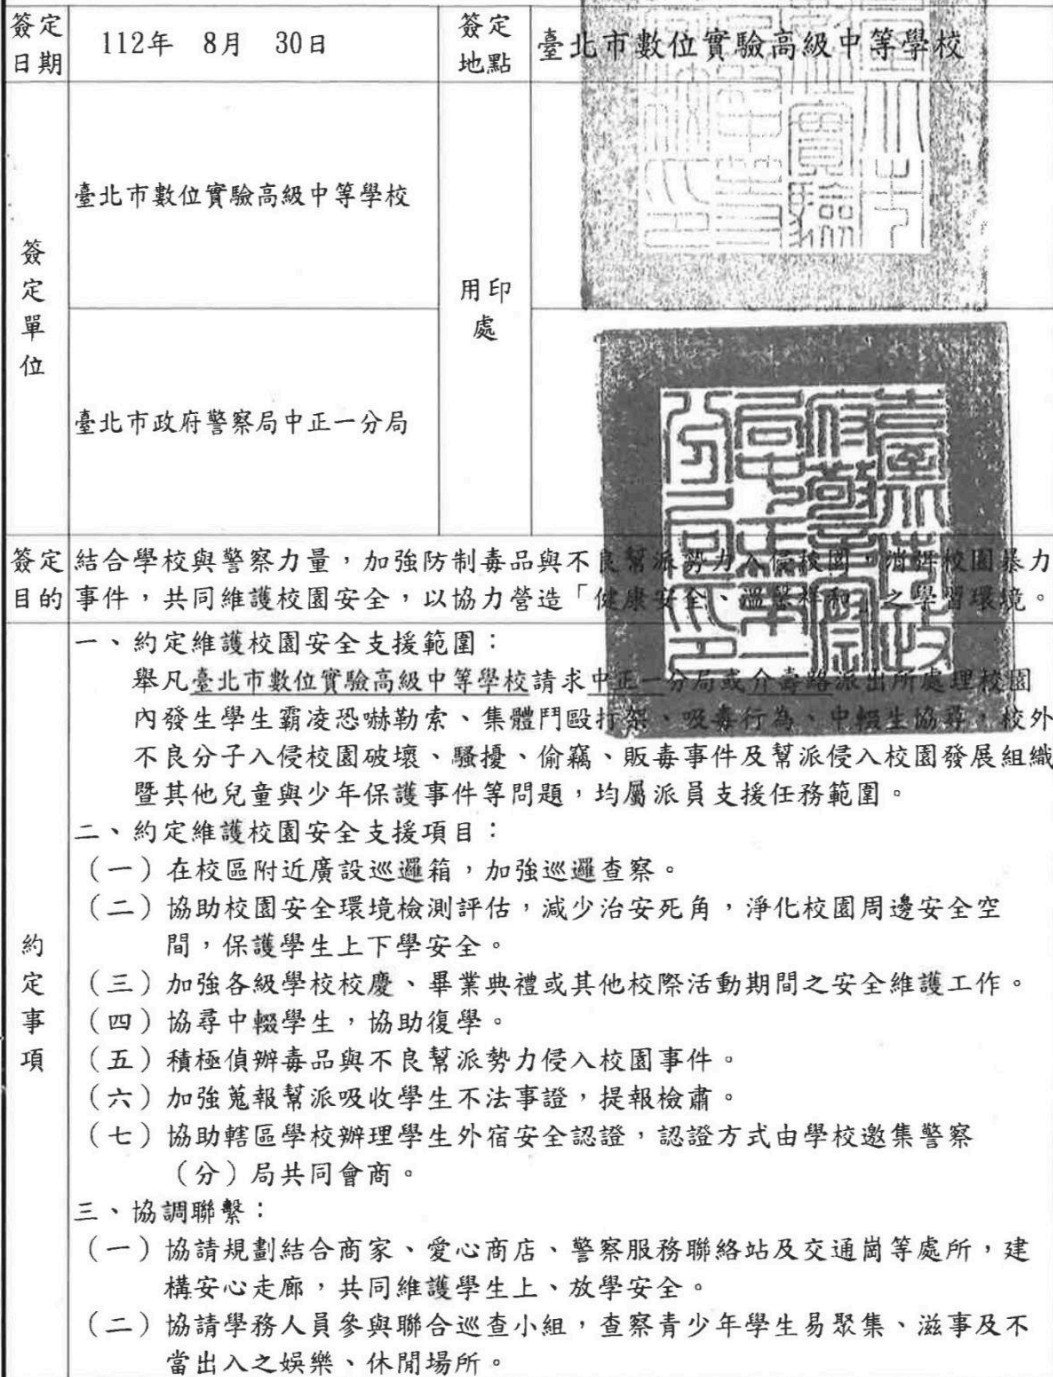 簽定日期
112年 8月 30日
簽定地點
臺北市數位實驗高級中等學校
簽定單位
臺北市數位實驗高級中等學校
用印處
臺北市政府警察局中正一分局
簽定目的
結合學校與警察力量，加強防制毒品與不良幫派勢力入侵校園，消弭校園暴力
事件，共同維護校園安全，以協力營造「健康安全、溫馨祥和」之學習環境。
約定事項
一、約定維護校園安全支援範圍：
舉凡臺北市數位實驗高級中等學校請求中正一分局或介壽路派出所處理校園
內發生學生霸凌恐嚇勒索、集體鬥毆打架、吸毒行為、中輟生協尋，校外
不良分子入侵校園破壞、騷擾、偷竊、販毒事件及幫派侵入校園發展組織
暨其他兒童與少年保護事件等問題，均屬派員支援任務範圍。
二、約定維護校園安全支援項目：
（一）在校區附近廣設巡邏箱，加強巡邏查察。
（二）協助校園安全環境檢測評估，減少治安死角，淨化校園周邊安全空
間，保護學生上下學安全。
（三）加強各級學校校慶、畢業典禮或其他校際活動期間之安全維護工作。
（四）協尋中輟學生，協助復學。
（五）積極偵辦毒品與不良幫派勢力侵入校園事件。
（六）加強蒐報幫派吸收學生不法事證，提報檢肅。
（七）協助轄區學校辦理學生外宿安全認證，認證方式由學校邀集警察
（分）局共同會商。
三、協調聯繫：
（一）協請規劃結合商家、愛心商店、警察服務聯絡站及交通崗等處所，建
構安心走廊，共同維護學生上、放學安全。
（二）協請學務人員參與聯合巡查小組，查察青少年學生易聚集、滋事及不
當出入之娛樂、休閒場所。